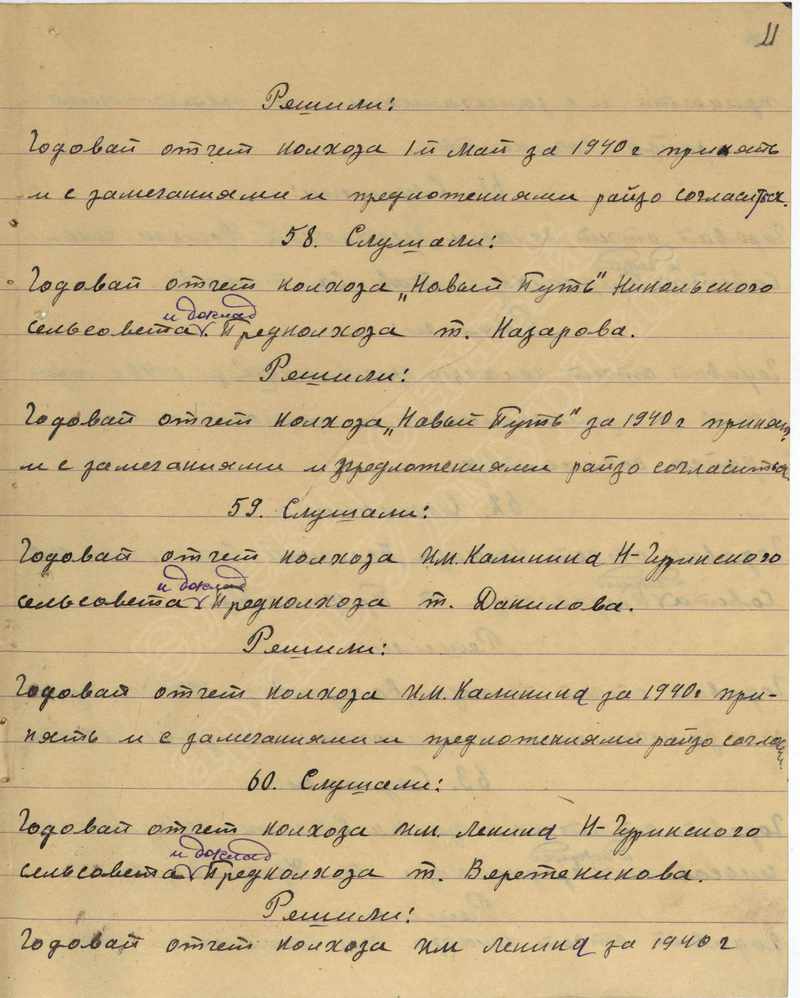 11
Решили:
Годовай отчет колхоза 1й Май за 1940 г принять
и с замечаниями и предложениями райзо согласиться.
58. Слушали:
Годовай отчет колхоза „Новый Путь" Никольского
и доклад
сельсовета. Предколхоза т. Назарова.
Решили:
Годовай отчет колхоза „Новый Путь" за 1940 г принять
и с замечаниями и предложениями райзо согласиться.
59. Слушали:
Годовай отчет колхоза им. Калинина Н-
и доклад
сельсовета Предколхоза т. Данилова.
Решили:
Годовай отчет колхоза им. Калинина за 1940 г при-
нять и с замечаниями и предложениями райзо
60. Слушали:
Годовай отчет колхоза им. Ленина Н-
и доклад
сельсовета Предколхоза т. Веретеникова.
Решили:
Годовай отчет колхоза им Ленина за 1940 г